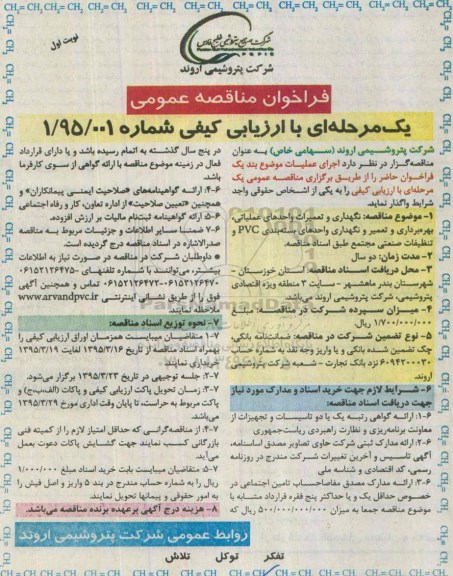 نوبت اول
شرکت صنایع پتروشیمی خلیج فارس
شرکت پتروشیمی اروند
فراخوان مناقصه عمومی
یک‌مرحله‌ای با ارزیابی کیفی شماره ۱/۹۵/۰۰۱
شرکت پتروشیمی اروند (سهامی خاص) به عنوان
مناقصه‌گزار در نظر دارد اجرای عملیات موضوع بند یک
فراخوان حاضر را از طریق برگزاری مناقصه عمومی یک
مرحله‌ای با ارزیابی کیفی را به یکی از اشخاص حقوقی واجد
شرایط واگذار نماید.
۱- موضوع مناقصه: نگهداری و تعمیرات واحدهای عملیاتی،
بهره‌برداری و تعمیر و نگهداری واحدهای بسته‌بندی PVC و
تنظیفات صنعتی مجتمع طبق اسناد مناقصه.
۲- مدت زمان: دو سال
۳- محل دریافت اسناد مناقصه: استان خوزستان -
شهرستان بندر ماهشهر - سایت ۳ منطقه ویژه اقتصادی
پتروشیمی، شرکت پتروشیمی اروند می‌باشد.
۴- میزان سپرده شرکت در مناقصه: مبلغ
۱/۷۰۰/۰۰۰/۰۰۰ ریال.
۵- نوع تضمین شرکت در مناقصه: ضمانتنامه بانکی،
چک تضمین شده بانکی و یا واریز وجه نقد به شماره حساب
۶۰۹۴۲۰۰۰۲ نزد بانک تجارت - شعبه شرکت پتروشیمی
اروند.
۶- شرایط لازم جهت خرید اسناد و مدارک مورد نیاز
جهت دریافت اسناد مناقصه:
۶-۱: ارائه گواهی رتبه یک یا دو تاسیسات و تجهیزات از
معاونت برنامه‌ریزی و نظارت راهبردی ریاست‌جمهوری
۶-۲: ارائه مدارک ثبتی شرکت حاوی تصاویر مصدق اساسنامه،
آگهی تاسیس و آخرین تغییرات شرکت مندرج در روزنامه
رسمی، کد اقتصادی و شناسه ملی
۶-۳: ارائه مدارک مصدق مفاصاحساب تامین اجتماعی در
خصوص حداقل یک و یا حداکثر پنج فقره قرارداد مشابه با
موضوع مناقصه جمعا به میزان ۵۰۰/۰۰۰/۰۰۰/۰۰۰ ریال که
در پنج سال گذشته به اتمام رسیده باشد و یا دارای قرارداد
فعال در زمینه موضوع مناقصه با ارائه گواهی از سوی کارفرما
باشد.
۶-۴: ارائه گواهینامه‌های «صلاحیت ایمنی پیمانکاران» و
همچنین «تعیین صلاحیت» از اداره تعاون، کار و رفاه اجتماعی
۶-۵: ارائه گواهینامه ثبت‌نام مالیات بر ارزش افزوده.
۶-۷: ضمنا سایر اطلاعات و جزئیات مربوط به مناقصه
صدرالاشاره در اسناد مناقصه درج گردیده است.
● داوطلبان شرکت در مناقصه در صورت نیاز به اطلاعات
بیشتر، می‌توانند با شماره تلفنهای ۰۶۱۵۲۱۲۶۴۷۵-
۰۶۱۵۲۱۲۶۴۷۰-۰۶۱۵۲۱۲۶۴۷۲ تماس و همچنین آگهی
فوق را از طریق نشانی اینترنتی www.arvandpvc.ir
ملاحظه نمایند.
۷- نحوه توزیع اسناد مناقصه:
۷-۱: متقاضیان میبایست همزمان اوراق ارزیابی کیفی را
بهمراه اسناد مناقصه از تاریخ ۱۳۹۵/۳/۱۶ لغایت ۱۳۹۵/۳/۱۹
خریداری نمایند.
۷-۲: جلسه توجیهی در تاریخ ۱۳۹۵/۳/۲۳ برگزار می‌شود.
۷-۳: زمان تحویل پاکت ارزیابی کیفی و پاکات (الف،ب،ج) و
پاکت مربوط به حراست، تا پایان وقت اداری مورخ ۱۳۹۵/۳/۲۹
می‌باشد.
۷-۴: از مناقصه‌گرانی که حداقل امتیاز لازم را از کمیته فنی
بازرگانی کسب نمایند جهت گشایش پاکات دعوت بعمل
می‌آید.
۷-۵: متقاضیان میبایست بابت خرید اسناد مبلغ ۱/۰۰۰/۰۰۰
ریال را به شماره حساب مندرج در بند ۵ واریز و اصل فیش را
به امور حقوقی و پیمانها تحویل نمایند.
۸- هزینه درج آگهی برعهده برنده مناقصه می‌باشد.
روابط عمومی شرکت پتروشیمی اروند
تفکر توکل تلاش